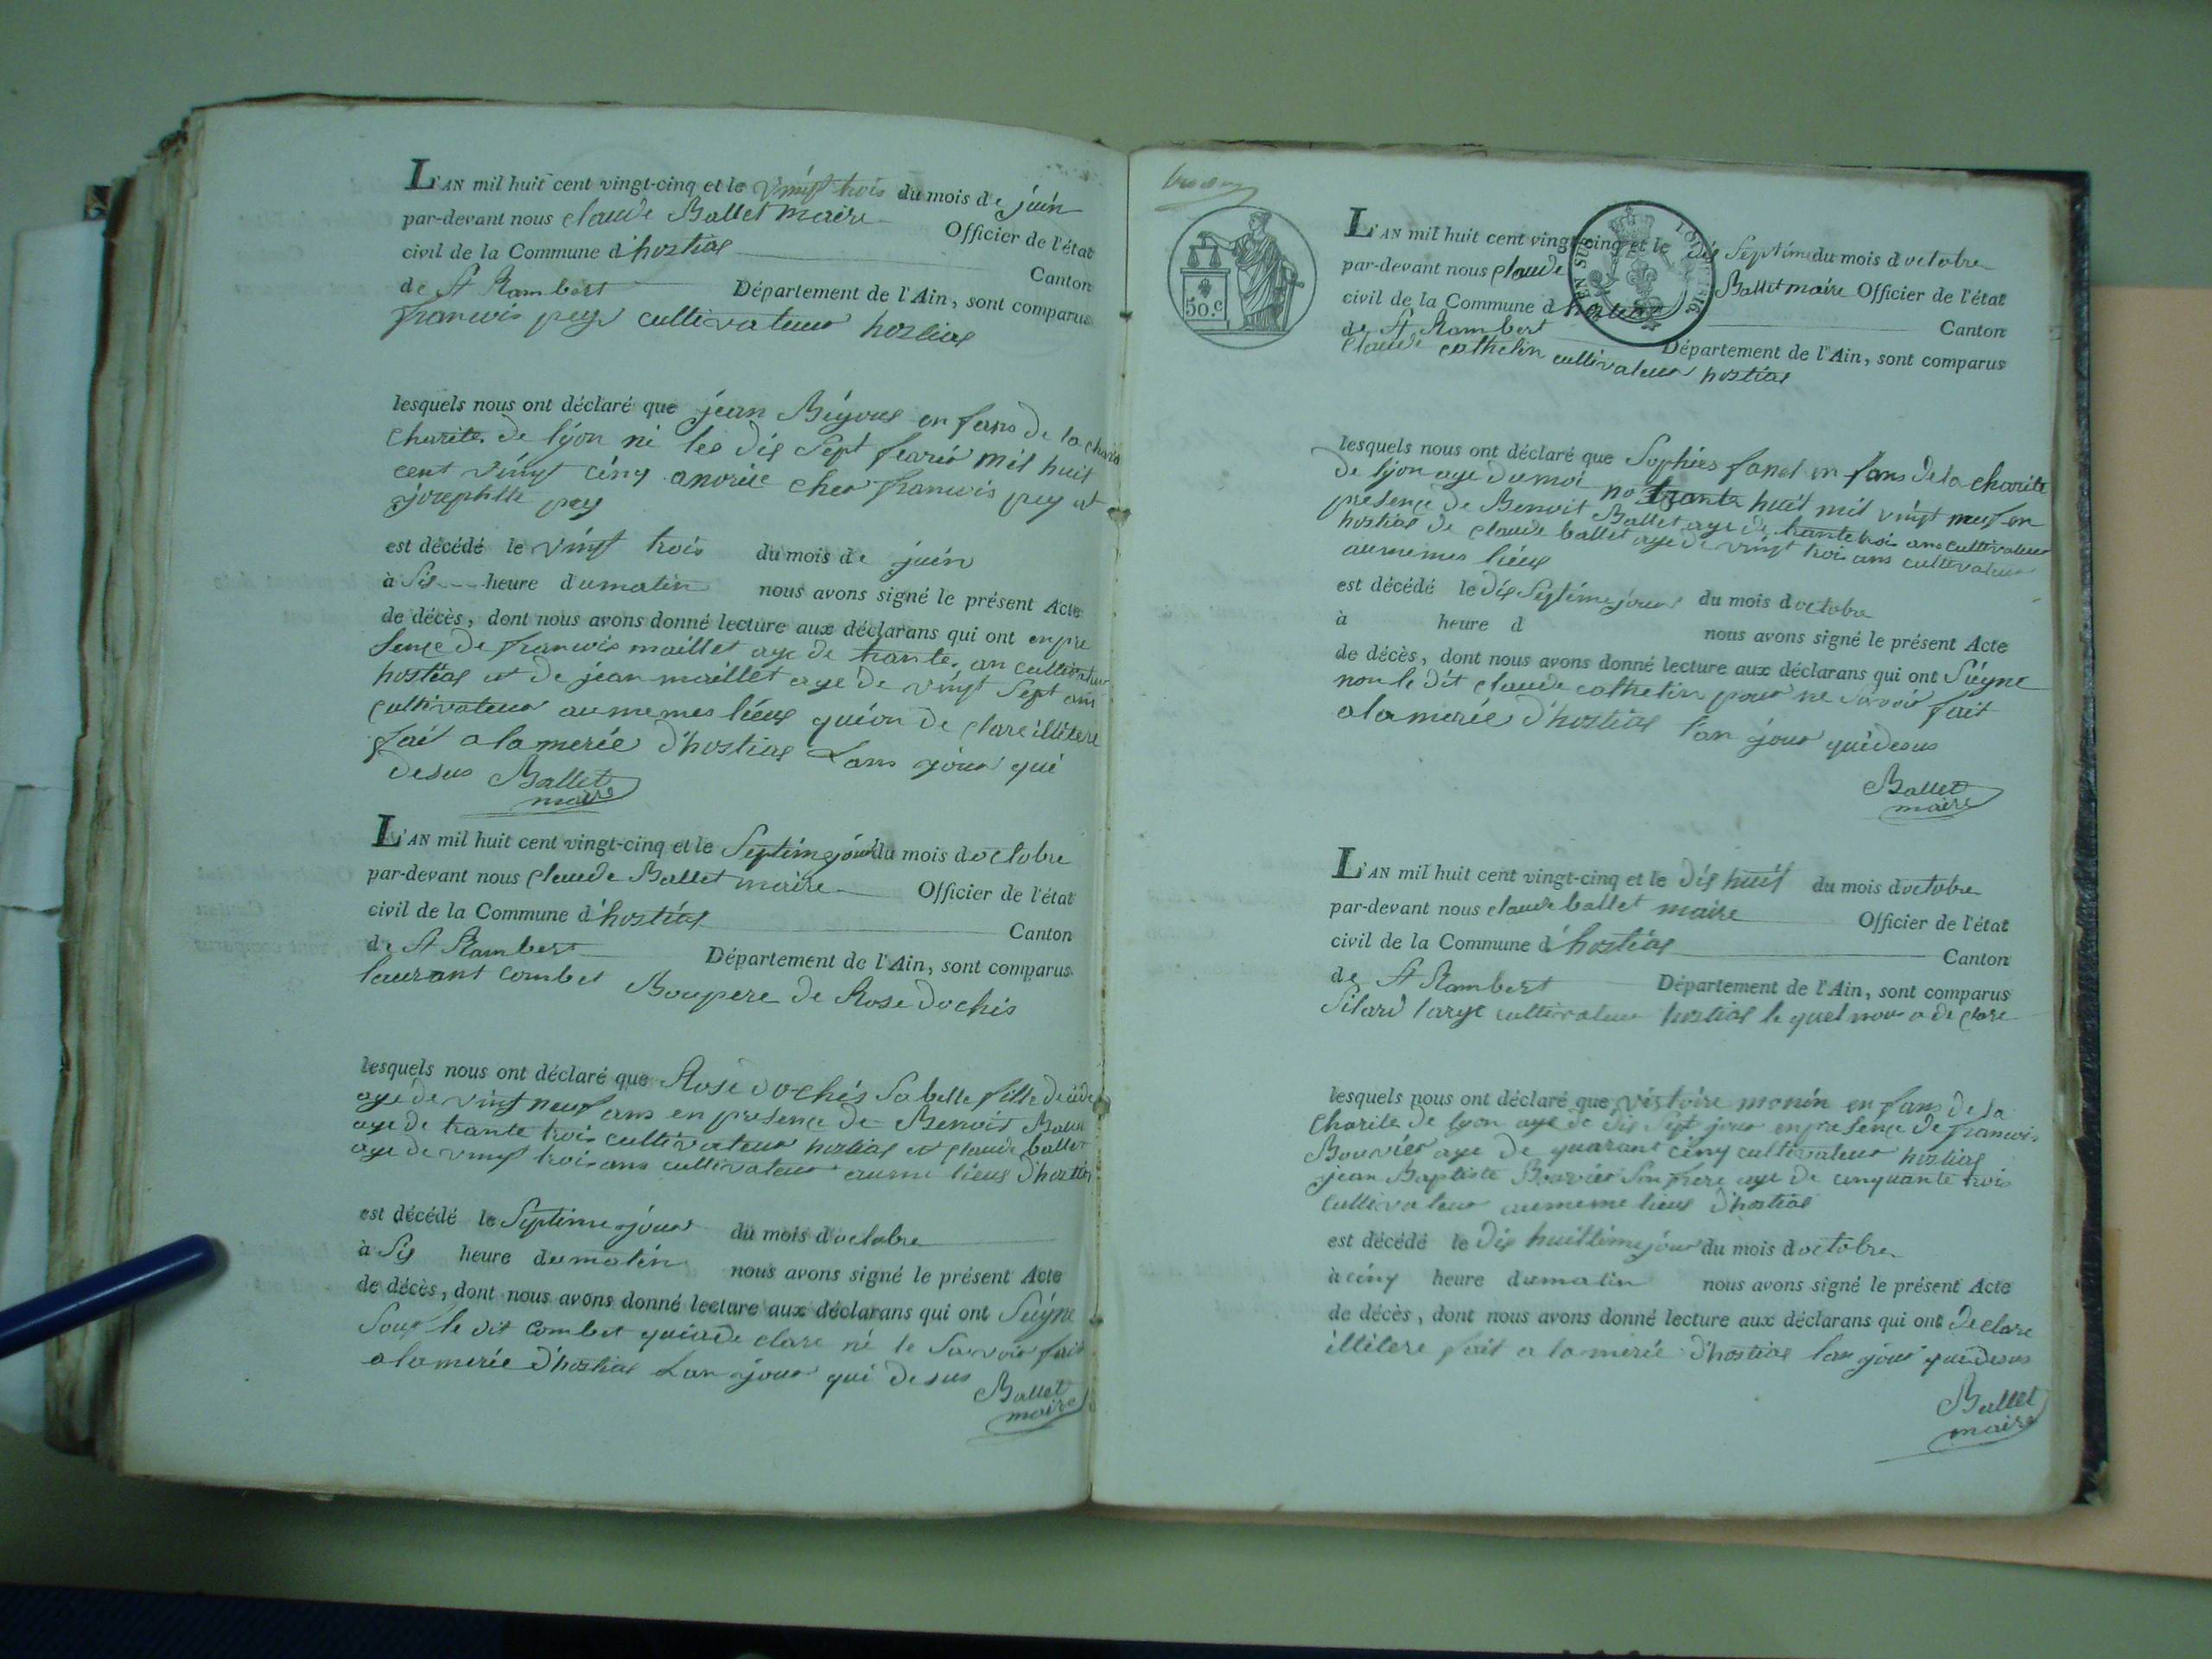 L'AN mil huit cent vingt-cinq et le vingt trois du mois de juin
par-devant nous claude Ballet maire Officier de l'état
civil de la Commune d'hostias Canton
de St Rambert Département de l'Ain, sont comparus
francois pey cultivateur hostias
lesquels nous ont déclaré que jean en fans de la
charite de lyon ne les dis sept mil huit
cent vingt cinq cher francois pey et
pey
est décédé le vingt trois du mois de juin
à sis heure dumatin nous avons signé le présent Acte
de décès, dont nous avons donné lecture aux déclarans qui ont en pre
sence de francois maillet aye de trante an cultivateur
hostias et de jean maillet aye de vingt sept ans
cultivateur aumemes lieus quéon de clare illitere
fait a la merie d'hostias Lans jour qui
desus Ballet
maire
L'AN mil huit cent vingt-cinq et le septime jour du mois doctobre
par-devant nous claude Ballet maire Officier de l'état
civil de la Commune d'hostias Canton
de St Rambert Département de l'Ain, sont comparus
laurant combet Boupere de Rose dochis
lesquels nous ont déclaré que Rose dochis sa belle fille
ayé de vingt neuf ans en presence de Benoit
aye de trante trois cultivateur hostias et claude ballet
aye de vingt trois ans cultivateur aume lieus d'hostias
est décédé le septime jour du mois doctobre
à sis heure dumatin nous avons signé le présent Acte
de décès, dont nous avons donné lecture aux déclarans qui ont siigne
le dit combet clare ne le savoir fait
a la merie d'hostias Lan jour qui desus
Ballet
maire
50.c
L'AN mil huit cent vingt-cinq et le dis septime du mois doctobre
par-devant nous claude Ballet maire Officier de l'état
civil de la Commune d hostias Canton
de St Rambert Département de l'Ain, sont comparus
claude cathelin cultivateur hostias
lesquels nous ont déclaré que Sophies fanel en fans dela charite
de lyon aye du moi no trante huit mil vingt neuf en
presence de Benoit Ballet aye de trante trois ans cultivateur
hostias de claude ballet aye de vingt trois ans cultivateur
aumemes lieus
est décédé le dis septime jour du mois doctobre
à heure d nous avons signé le présent Acte
de décès, dont nous avons donné lecture aux déclarans qui ont siigne
non le dit claude cathelin pour ne savoir fait
a la merie d'hostias lan jour qui desus
Ballet
maire
L'AN mil huit cent vingt-cinq et le dis huit du mois doctobre
par-devant nous claude ballet maire Officier de l'état
civil de la Commune d'hostias Canton
de St Rambert Département de l'Ain, sont comparus
Silard large cultivateur hostias le quel nous a de clare
lesquels nous ont déclaré que victoire monin en fans de la
charite de lyon aye de dis sept jour en presence de francois
Bouvier aye de quarant cinq cultivateur hostias
jean Baptiste Bouvier son frere aye de cinquante trois
cultivateur aumeme lieus d'hostias
est décédé le dis huittime jour du mois doctobre
à cinq heure dumatin nous avons signé le présent Acte
de décès, dont nous avons donné lecture aux déclarans qui ont declare
illitere fait a la merie d'hostias lan jour qui desus
Ballet
maire